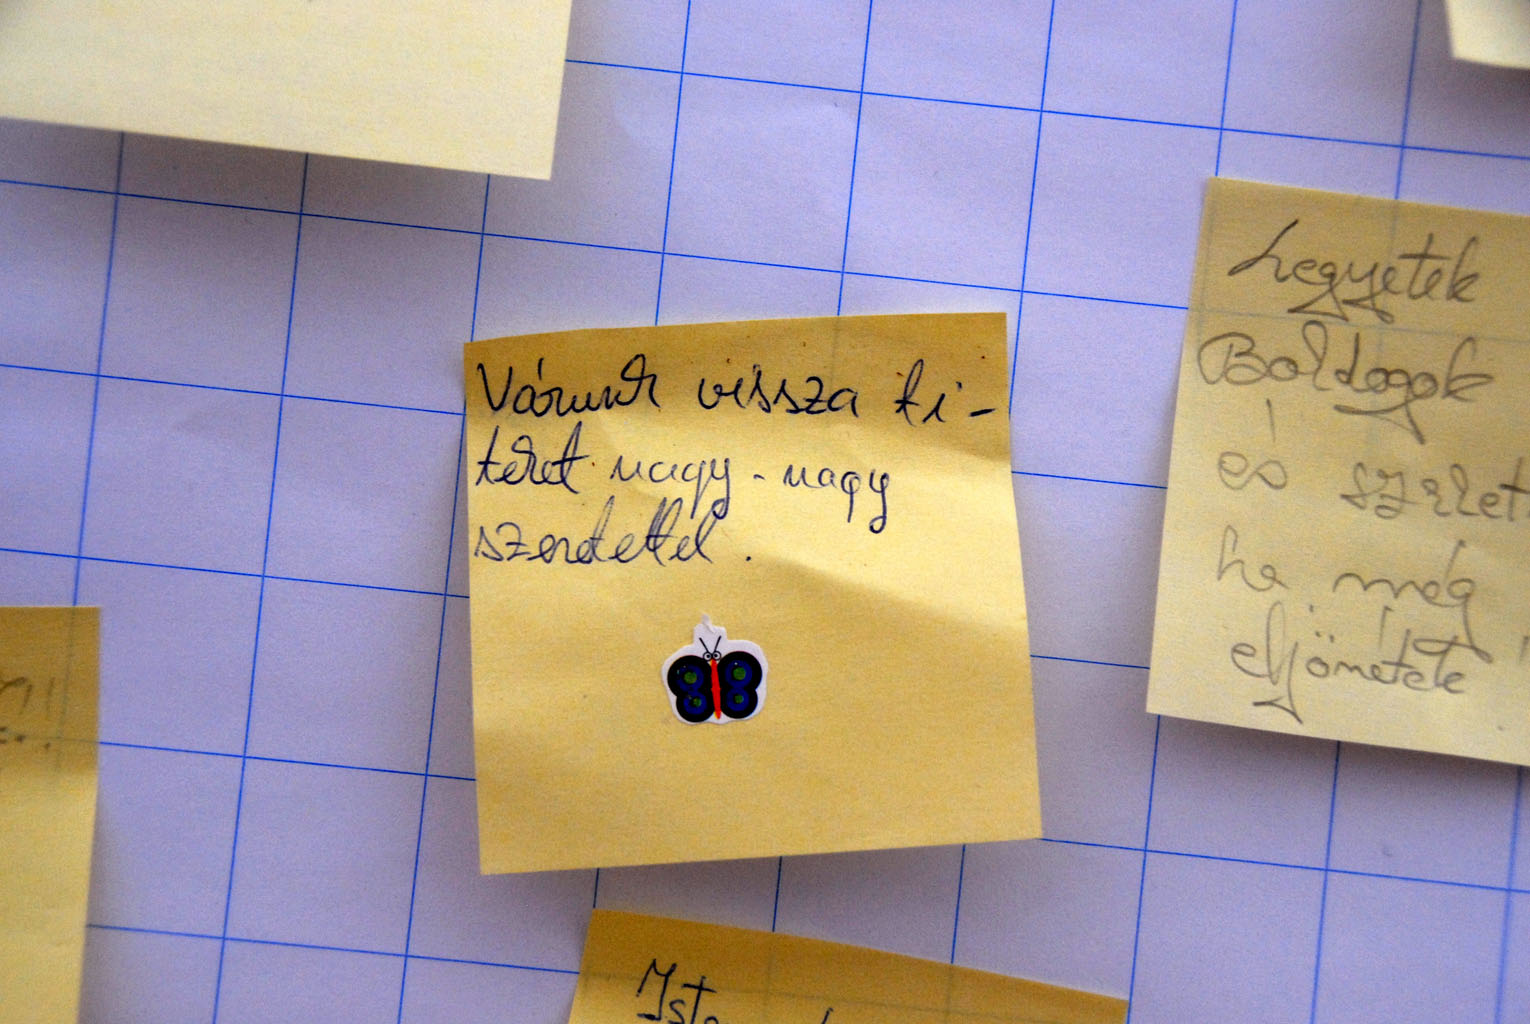 Várunk vissza ti-
teket nagy-nagy
szeretettel.
Legyetek
Boldogok
és szeret
ha még
eljönnétek
Iste